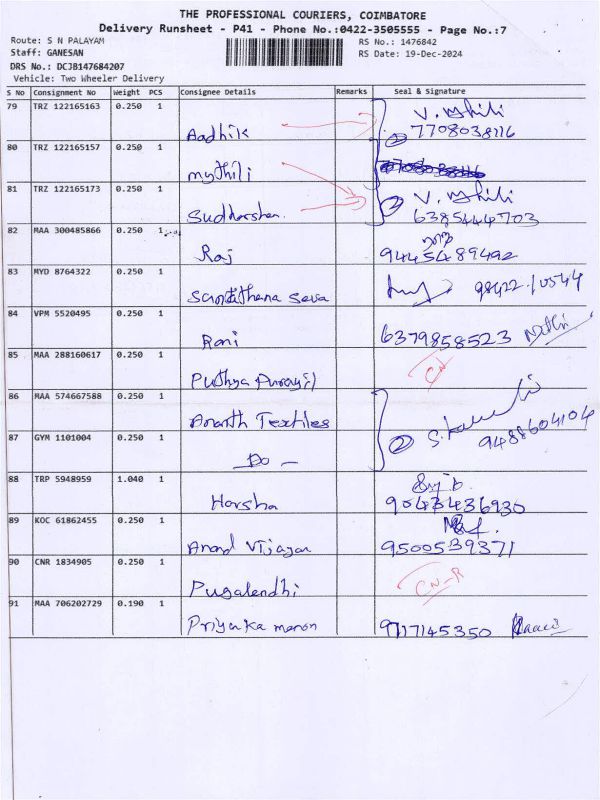 THE PROFESSIONAL COURIERS, COIMBATORE
Delivery Runsheet - P41 - Phone No.:0422-3505555 - Page No.:7
Route: S N PALAYAM
RS No.: 1476842
Staff: GANESAN
RS Date: 19-Dec-2024
DRS No.: DCJB147684207
Vehicle: Two Wheeler Delivery
S No Consignment No Weight PCS Consignee Details Remarks Seal & Signature
79 TRZ 122165163 0.250 1
Aadhik 2 7708038116
80 TRZ 122165157 0.250 1
mythili
81 TRZ 122165173 0.250 1
Sudharshan. 2 6385444703
82 MAA 300485866 0.250 1
Raj 9445489492
83 MYD 8764322 0.250 1
Seva
84 VPM 5520495 0.250 1
Rani 6379858523
85 MAA 288160617 0.250 1
CN
86 MAA 574667588 0.250 1
Ananth Textiles
2 9488604104
87 GYM 1101004 0.250 1
Do
88 TRP 5948959 1.040 1
Harsha 9043436930
89 KOC 61862455 0.250 1
Anand Vijayan 9500539371
90 CNR 1834905 0.250 1
Pugalendhi CN-R
91 MAA 706202729 0.190 1
Priyanka menon 9717145350